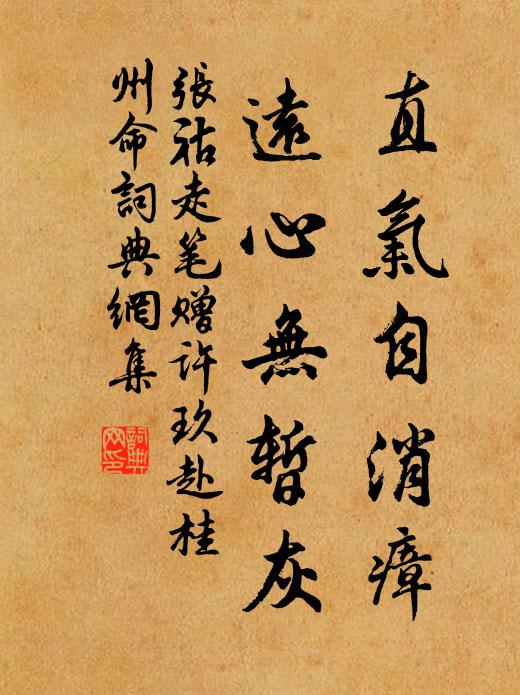 直氣自消瘴
遠心無暫灰
張祜走笔贈許玖赴桂
州命詞典網集
詞典网印